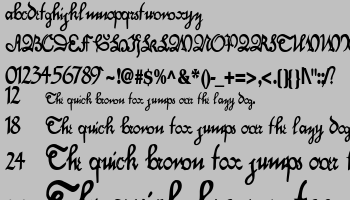 abcdefghijklmnopqrstuvwxyz
ABCDEFGHIJKLMNOPQRSTUVWX
0123456789~!@#$%^&*()-_+=>,<.[]{}|/\'"::;/?
12 The quick brown fox jumps over the lazy dog.
18 The quick brown fox jumps over the lazy dog
24 The quick brown fox jumps over
The quick brown fox